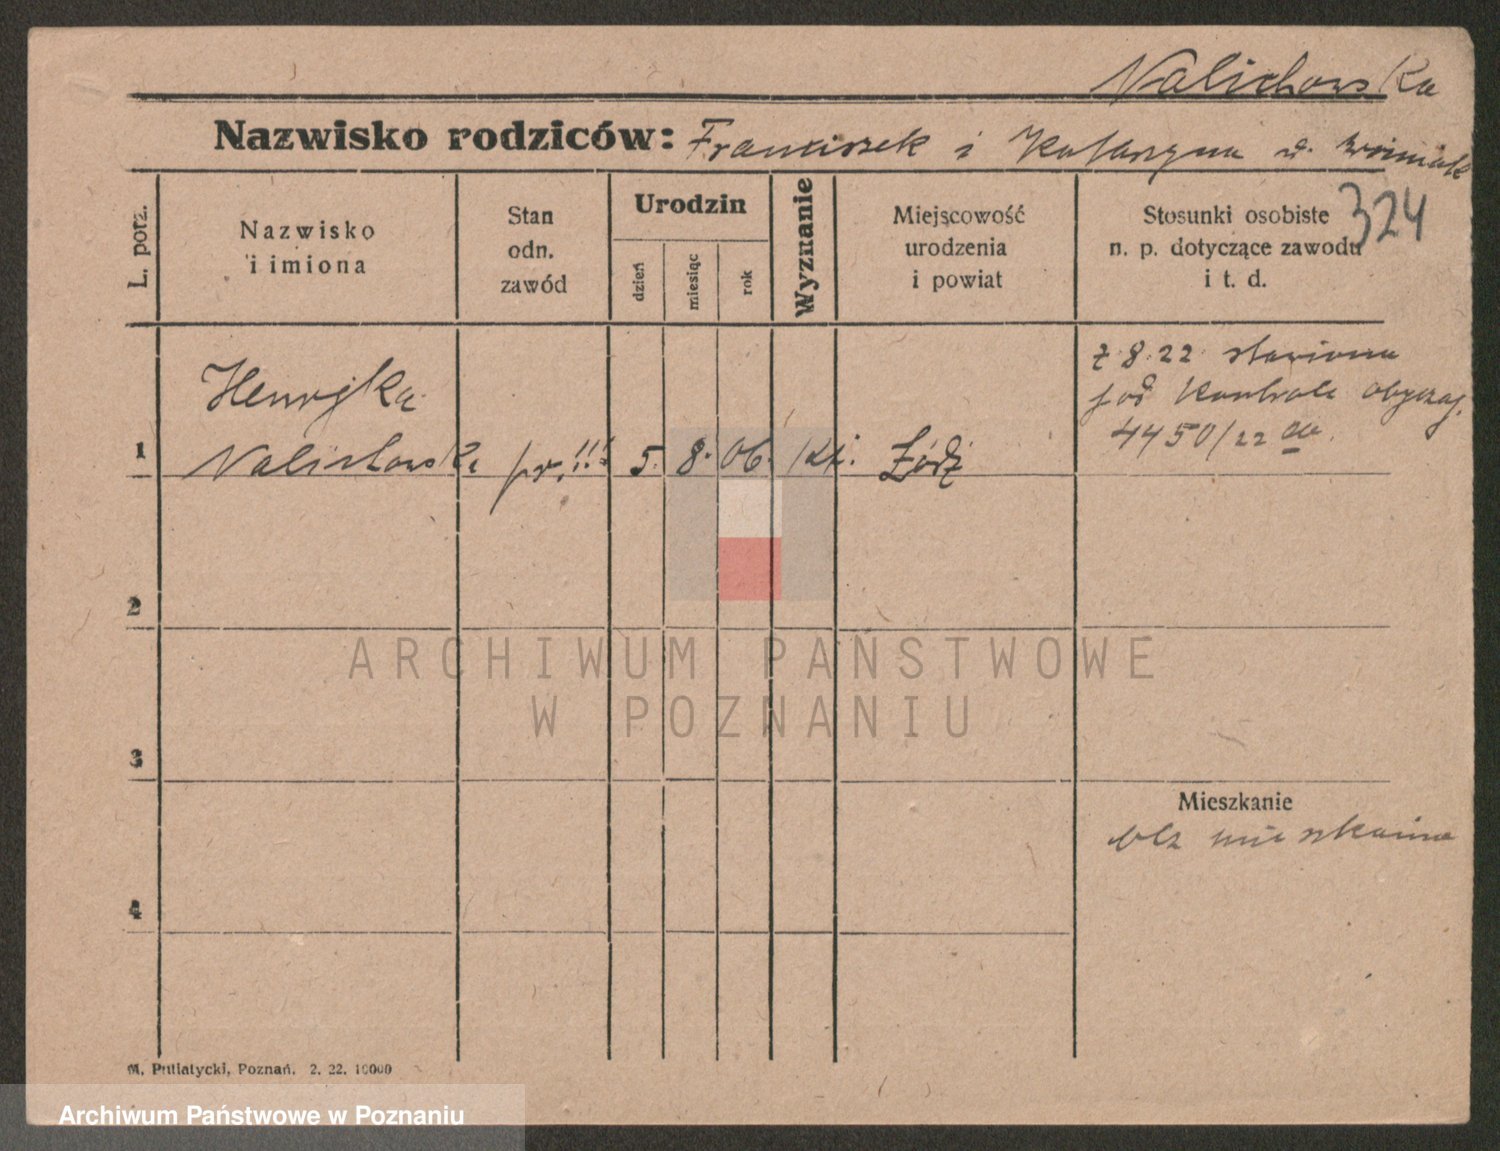 Nalichowska
Nazwisko rodziców: Franciszek i Katarzyna d.
324
L. porz.
Nazwisko
i imiona
Stan
odn.
zawód
Urodzin
dzień
miesiąc
rok
Wyznanie
Miejscowość
urodzenia
i powiat
Stosunki osobiste
n. p. dotyczące zawodu
i t. d.
1
Henryka
Nalichowska
pr.!!!
5.
8.
06.
Kt.
Łódź
z 8.22 stawiona
pod kontrolę obyczaj.
4450/22
2
3
4
Mieszkanie
bez mieszkania
M. Putiatycki, Poznań. 2. 22. 10000
ARCHIWUM PAŃSTWOWE
W POZNANIU
Archiwum Państwowe w Poznaniu